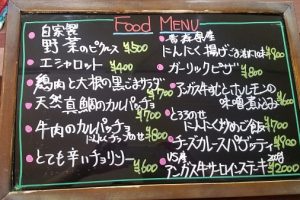 Food MENU
自家製
野菜のピクルス ¥500
エシャロット ¥400
鶏肉と大根の黒ごまサラダ ¥700
天然真鯛のカルパッチョ ¥700
牛肉のカルパッチョ
にんにくチップのせ ¥800
とても辛いチョリソー ¥600
青森県産
にんにく揚げ ¥400
ガーリックピザ ¥800
アンガス牛すじとホルモンの
味噌煮込み ¥600
とろろのせ
にんにく炒めご飯 ¥700
チーズクリームスパゲッティ ¥900
US産
アンガス牛サーロインステーキ ¥2000